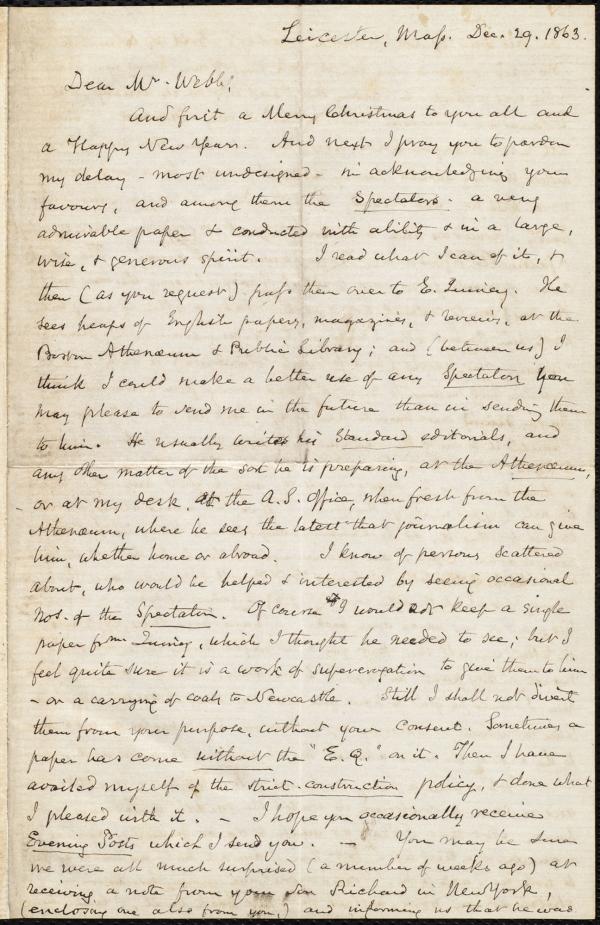 Leicester, Mass. Dec. 29. 1863.
Dear Mr. Webb,
And first a Merry Christmas to you all and
a Happy New Year. And next I pray you to pardon
my delay - most undesigned - in acknowledging your
favours, and among them the Spectators - a very
admirable paper & conducted with ability & in a large,
wise, & generous spirit. I read what I can of it, &
then (as you request) pass them over to E. Quincy. He
sees heaps of English papers, magazines, & reviews, at the
Boston Athenæum & Public Library; and (between us) I
think I could make a better use of any Spectators you
may please to send me in the future than in sending them
to him. He usually writes his Standard editorials, and
any other matter of the sort he is preparing, at the Athenæum,
or at my desk, at the A.S. Office, when fresh from the
Athenæum, where he sees the latest that journalism can give
him, whether home or abroad. I know of persons scattered
about, who would be helped & interested by seeing occasional
Nos. of the Spectator. Of course I would not keep a single
paper from Quincy, which I thought he needed to see; but I
feel quite sure it is a work of supererogation to give them to him
- or a carrying of coals to Newcastle. Still I shall not divert
them from your purpose, without your consent. Sometimes a
paper has come without the "E.Q." on it. Then I have
availed myself of the strict-construction policy, & done what
I pleased with it. - I hope you occasionally receive
Evening Posts which I send you. - You may be sure
we were all much surprised (a number of weeks ago) at
receiving a note from your son Richard in New York,
(enclosing one also from you,) and informing us that he was